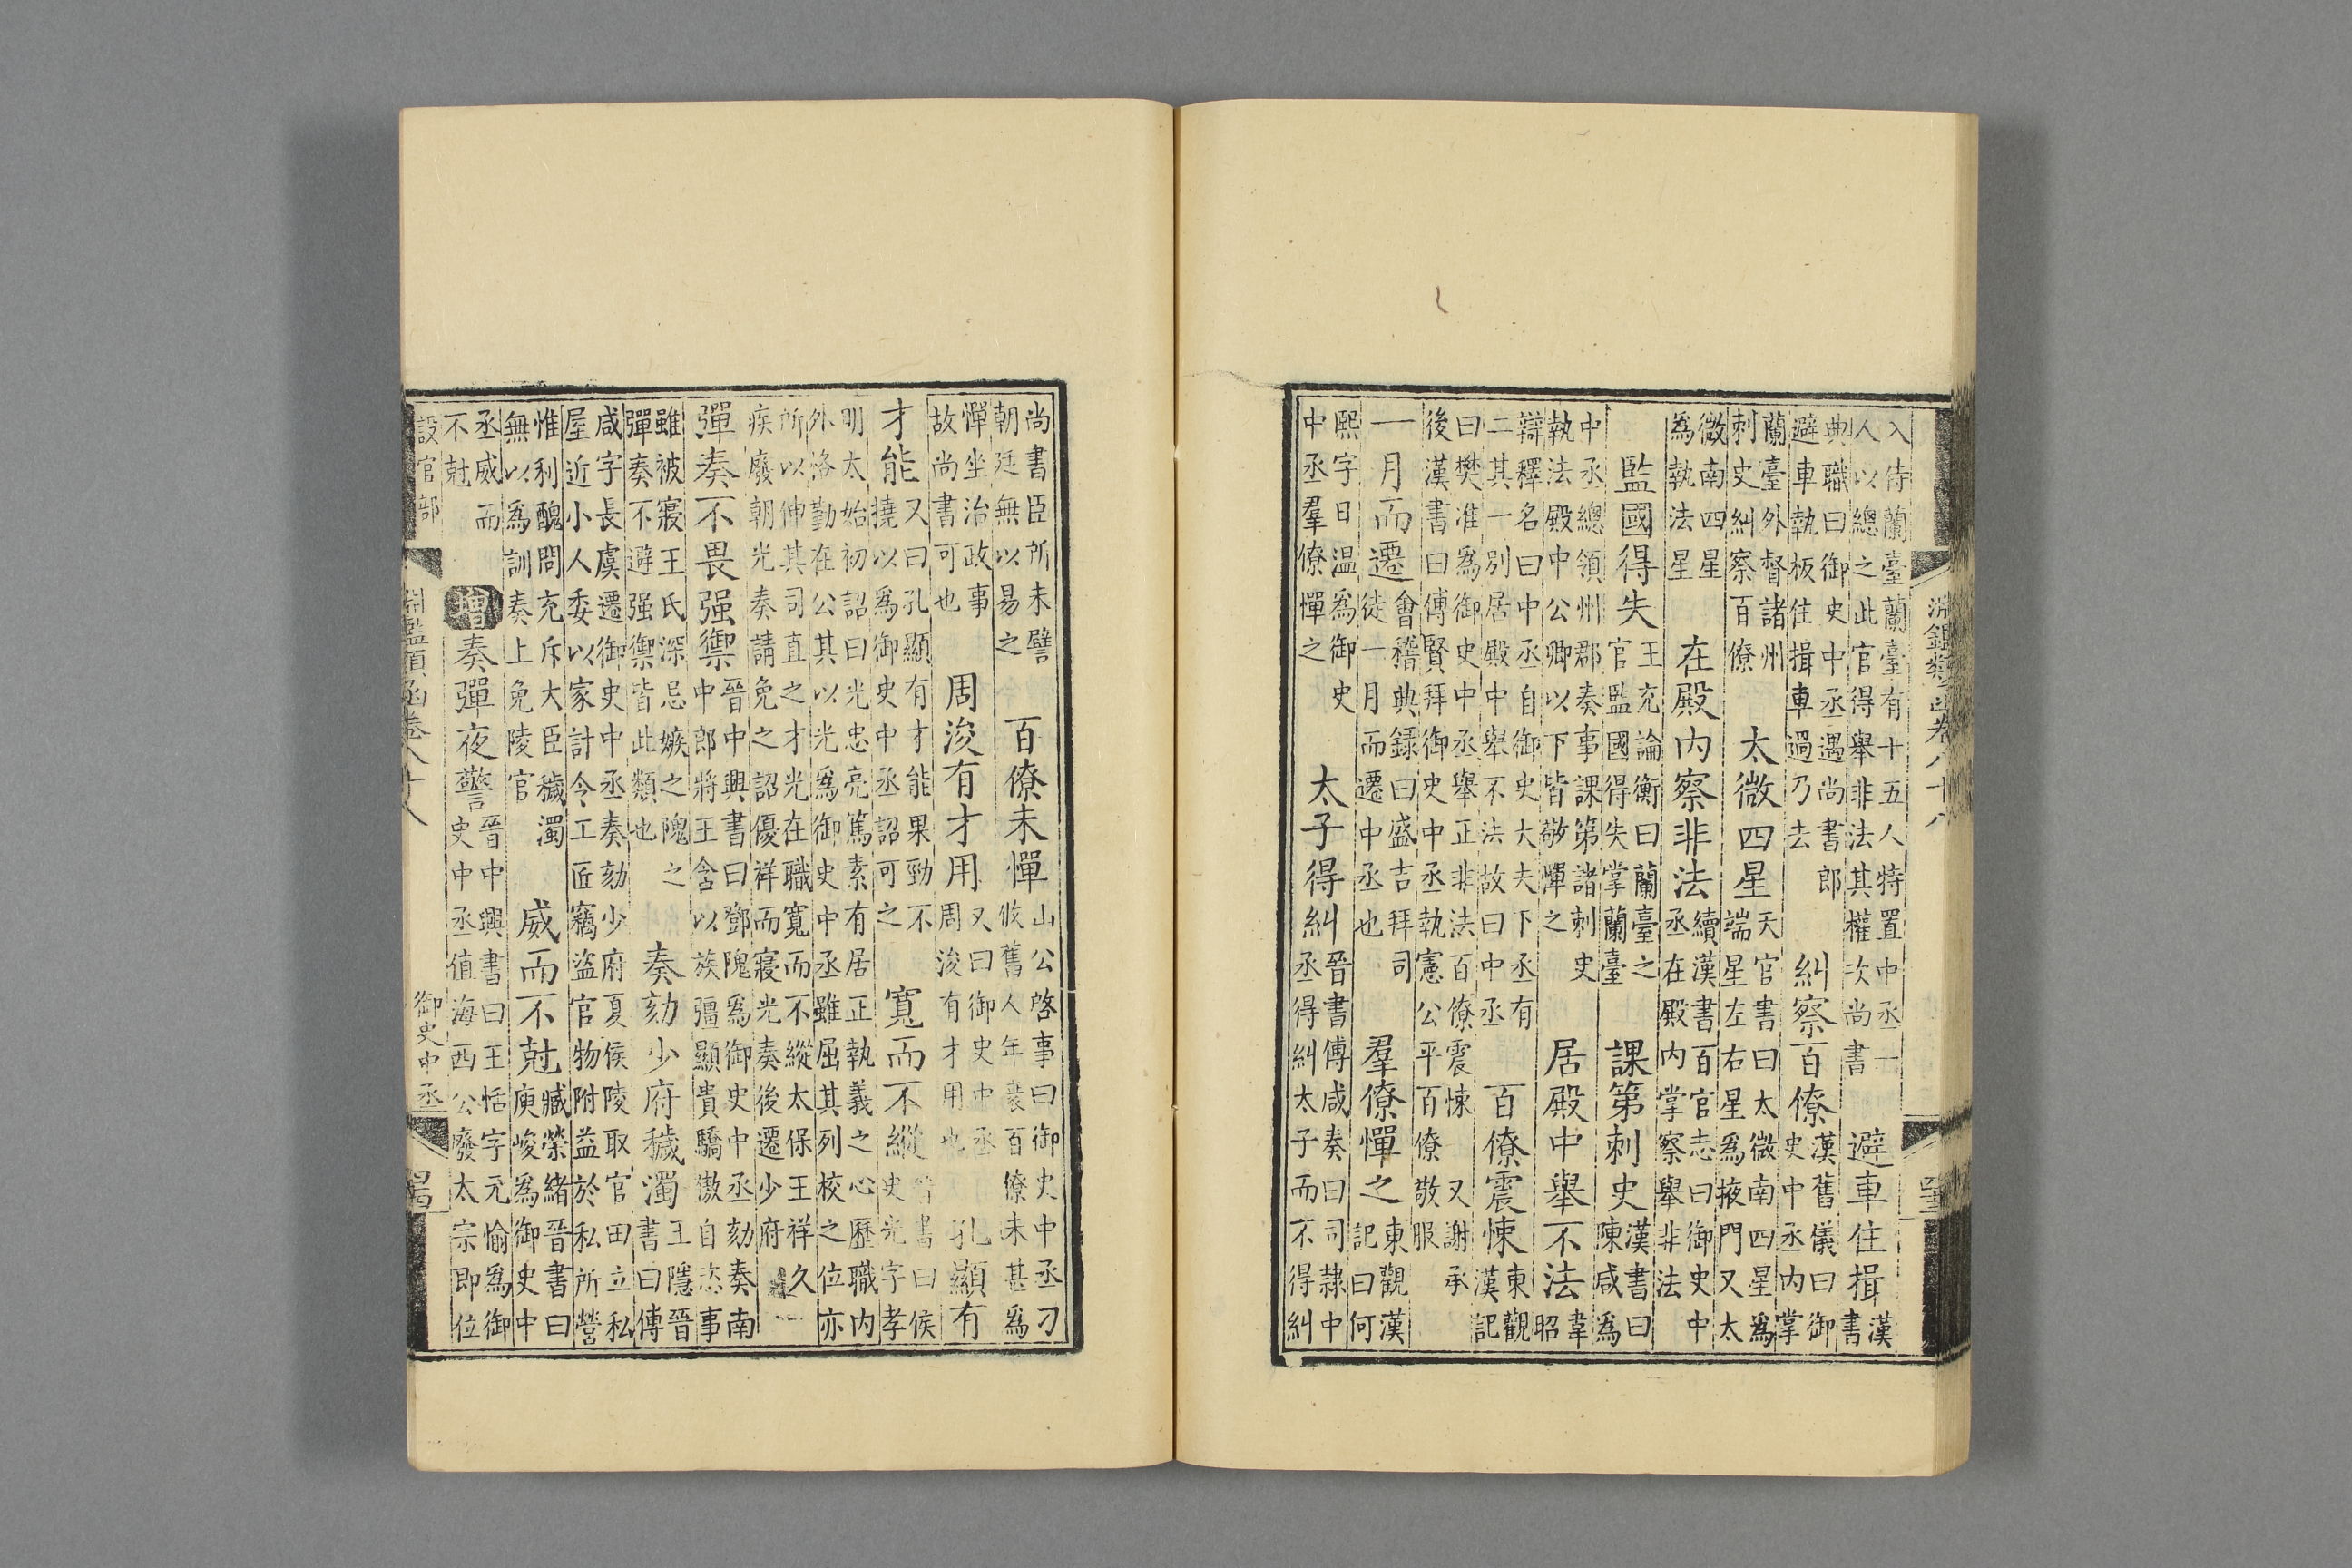 淵鑑類函卷八十八
入侍蘭臺蘭臺有十五人特置中丞一
人以總之此官得舉非法其權次尚書
避車住揖
漢
書
典職曰御史中丞遇尚書郎
避車執板住揖車過乃去
糾察百僚
漢舊儀曰御
史中丞内掌
蘭臺外督諸州
刺史糾察百僚
太微四星
天官書曰太微南四星爲
端星左右星爲掖門又太
微南四星
爲執法星
在殿内察非法
續漢書百官志曰御史中
丞在殿内掌察舉非法
監國得失
王充論衡曰蘭臺之
官監國得失掌蘭臺
課第刺史
漢書曰
陳咸爲
中丞總領州郡奏事課第諸刺史
執法殿中公卿以下皆敬憚之
居殿中舉不法
韋
昭
辯釋名曰中丞自御史大夫下丞有
二其一别居殿中舉不法故曰中丞
百僚震悚
東觀
漢記
曰樊准爲御史中丞舉正非法百僚震悚
又謝承
後漢書曰傅賢拜御史中丞執憲公平百僚敬服
一月而遷
會稽典録曰盛吉拜司
徒一月而遷中丞也
羣僚憚之
東觀漢
記曰何
熙字曰温爲御史
中丞羣僚憚之
太子得糾
晉書傅咸奏曰司隸中
丞得糾太子而不得糾
尚書臣所未譬
朝廷無以易之
百僚未憚
山公啓事曰御史中丞刁
攸舊人年衰百僚未甚爲
憚坐治政事
故尚書可也
周浚有才用
又曰御史中丞
周浚有才用也
孔顯有
才能
又曰孔顯有才能果勁不
撓以爲御史中丞詔可之
寬而不縱
晉書曰侯
史光字孝
明太始初詔曰光忠亮篤素有居正執義之心歷職内
外恪勤在公其以光爲御史中丞雖屈其列校之位亦
所以伸其司直之才光在職寬而不縱太保王祥久
疾廢朝光奏請免之詔優祥而寢光奏後遷少府
彈奏不畏强禦
晉中興書曰鄧隗爲御史中丞劾奏南
中郎將王含以族彊顯貴驕傲自恣事
雖被寢王氏深忌嫉之隗之
彈奏不避强禦皆此類也
奏劾少府穢濁
王隱晉
書曰傅
咸字長虞遷御史中丞奏劾少府夏侯陵取官田立私
屋近小人委以家計令工匠竊盜官物附益於私所營
惟利醜問充斥大臣穢濁
無以爲訓奏上免陵官
威而不尅
臧榮緒晉書曰
庾峻爲御史中
丞威而
不尅
增
奏彈夜警
晉中興書曰王恬字元愉爲御
史中丞值海西公廢太宗即位
設官部
淵鑑類函卷八十八
御史中丞